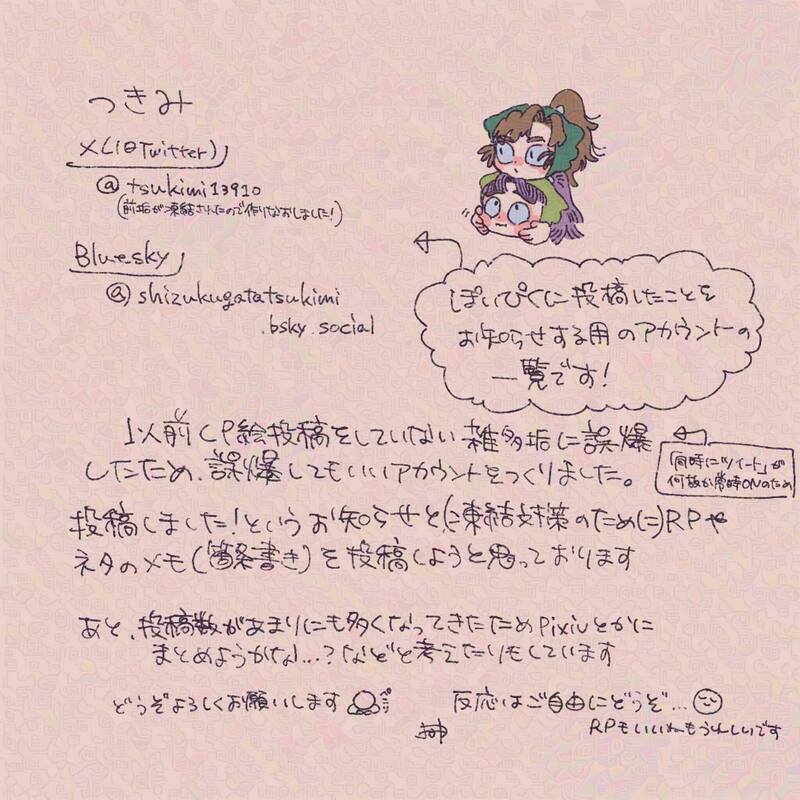 つきみ
X(旧Twitter)
@tsukimi13910
(前垢が凍結されたので作りなおしました!)
Bluesky
@shizukugatatsukimi
.bsky.social
ぽいぴくに投稿したことを
お知らせする用のアカウントの
一覧です!
以前CP絵投稿をしていない雑多垢に誤爆
したため、誤爆してもいいアカウントをつくりました。
「同時にツイート」が
何故か常時ONのため
投稿しました!というお知らせと(凍結対策のために)RPや
ネタのメモ(箇条書き)を投稿しようと思っております
あと、投稿数があまりにも多くなってきたためPixivとかに
まとめようかな…?などと考えたりもしています
どうぞよろしくお願いします
ペコリ
反応はご自由にどうぞ…
RPもいいねもうれしいです